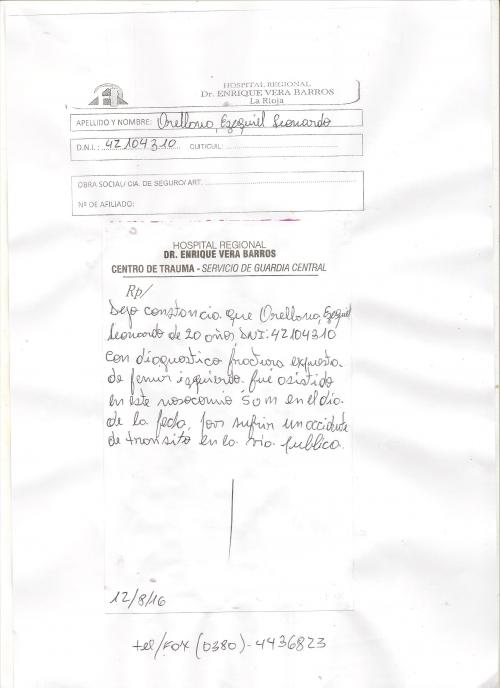 HOSPITAL REGIONAL
Dr. ENRIQUE VERA BARROS
La Rioja
APELLIDO Y NOMBRE: Orellano, Ezequiel Leonardo
D.N.I.: 42104310 CUIT/CUIL:
OBRA SOCIAL/ CIA. DE SEGURO/ ART.
Nº DE AFILIADO:
HOSPITAL REGIONAL
DR. ENRIQUE VERA BARROS
CENTRO DE TRAUMA - SERVICIO DE GUARDIA CENTRAL
Rp/
Dejo constancia que Orellano, Ezequiel
Leonardo de 20 años, DNI: 42104310
con diagnostico fractura expuesta
de femur izquierdo, fué asistido
en este nosocomio SAM en el día
de la fecha, por sufrir un accidente
de transito en la via publica.
12/8/16
tel/FOX (0380)-4436823